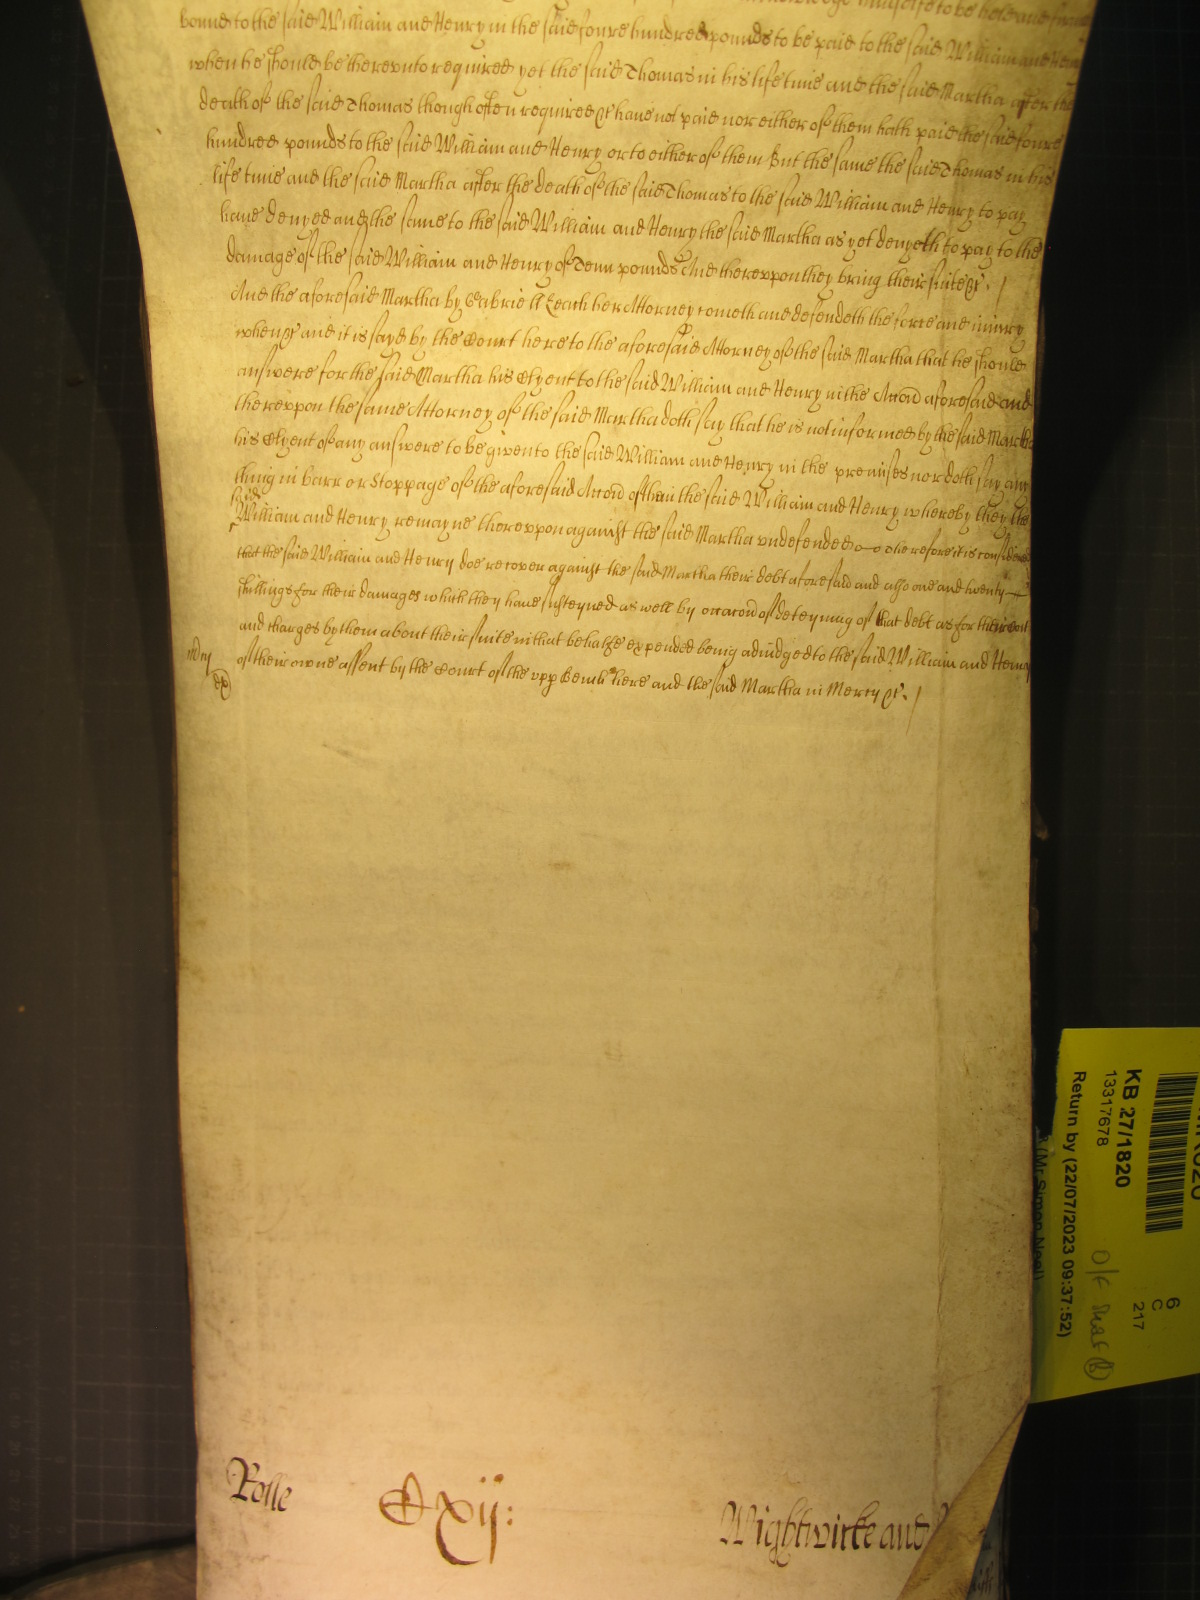 himselfe to be held and firmely
bound to the said William and Henry in the said foure hundred pounds to be paid to the said William and Henry
when he should be thereunto required yet the said Thomas in his life time and the said Martha after the
death of the said Thomas though often required &c have not paid nor either of them hath paid the said foure
hundred pounds to the said William and Henry or to either of them But the same the said Thomas in his
life time and the said Martha after the death of the said Thomas to the said William and Henry to pay
have denyed and the same to the said William and Henry the said Martha as yet denyeth to pay to the
damage of the said William and Henry of Tenn pounds And thereuppon they bring their suite &c.
And the aforesaid Martha by Gabriell Leach her Attorney cometh and defendeth the force and iniury
when &c and it is sayd by the Court here to the aforesaid Attorney of the said Martha that he should
answere for the said Martha his Clyent to the said William and Henry in the Accon aforesaid and
thereuppon the same Attorney of the said Martha doth say that he is not informed by the said Martha
his Clyent of any answere to be given to the said William and Henry in the premises nor doth say any
thing in barr or Stoppage of the aforesaid Accon of them the said William and Henry whereby they the
said
William and Henry remayne thereuppon against the said Martha undefended Therefore it is considered
that the said William and Henry doe recover against the said Martha their debt aforesaid and also one and twenty
shillings for their damages which they have susteyned as well by occacon of deteyning of that debt as for their cost
and charges by them about their suite in that behalfe expended being adiudged to the said William and Henry
mcy
of their owne assent by the Court of the upp Bench here and the said Martha in Mercy &c.
Rolle
CXij:
Wightwicke and
KB 27/1820
13317678
Return by (22/07/2023 09:37:52)
(Mr Simon Neal)
6
C
217